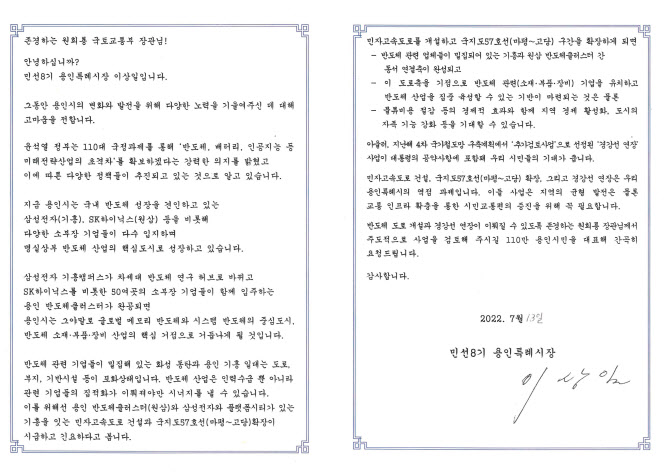 존경하는 원희룡 국토교통부 장관님!
안녕하십니까?
민선8기 용인특례시장 이상일입니다.
그동안 용인시의 변화와 발전을 위해 다양한 노력을 기울여주신 데 대해
고마움을 전합니다.
윤석열 정부는 110대 국정과제를 통해 '반도체, 배터리, 인공지능 등
미래전략산업의 초격차'를 확보하겠다는 강력한 의지를 밝혔고
이에 따른 다양한 정책들이 추진되고 있는 것으로 알고 있습니다.
지금 용인시는 국내 반도체 성장을 견인하고 있는
삼성전자(기흥), SK하이닉스(원삼) 등을 비롯해
다양한 소부장 기업들이 다수 입지하며
명실상부 반도체 산업의 핵심도시로 성장하고 있습니다.
삼성전자 기흥캠퍼스가 차세대 반도체 연구 허브로 바뀌고
SK하이닉스를 비롯한 50여곳의 소부장 기업들이 함께 입주하는
용인 반도체클러스터가 완공되면
용인시는 그야말로 글로벌 메모리 반도체와 시스템 반도체의 중심도시,
반도체 소재·부품·장비 산업의 핵심 거점으로 거듭나게 될 것입니다.
반도체 관련 기업들이 밀집해 있는 화성 동탄과 용인 기흥 일대는 도로,
부지, 기반시설 등이 포화상태입니다. 반도체 산업은 인력수급 뿐 아니라
관련 기업들의 집적화가 이뤄져야만 시너지를 낼 수 있습니다.
이를 위해선 용인 반도체클러스터(원삼)와 삼성전자와 플랫폼시티가 있는
기흥을 잇는 민자고속도로 건설과 국지도57호선(마평~고당)확장이
시급하고 긴요하다고 봅니다.
민자고속도로를 개설하고 국지도57호선(마평~고당) 구간을 확장하게 되면
- 반도체 관련 업체들이 밀집되어 있는 기흥과 원삼 반도체클러스터 간
동서 연결축이 완성되고
- 이 도로축을 기점으로 반도체 관련(소재·부품·장비) 기업을 유치하고
반도체 산업을 집중 육성할 수 있는 기반이 마련되는 것은 물론
- 물류비용 절감 등의 경제적 효과와 함께 지역 경제 활성화, 도시의
자족 기능 강화 등을 기대할 수 있습니다.
아울러, 지난해 4차 국가철도망 구축계획에서 '추가검토사업'으로 선정된 '경강선 연장'
사업이 대통령의 공약사항에 포함돼 우리 시민들의 기대가 큽니다.
민자고속도로 건설, 국지도57호선(마평~고당)확장, 그리고 경강선 연장은 우리
용인특례시의 역점 과제입니다. 이들 사업은 지역의 균형 발전은 물론
교통 인프라 확충을 통한 시민교통편의 증진을 위해 꼭 필요합니다.
반도체 도로 개설과 경강선 연장이 이뤄질 수 있도록 존경하는 원희룡 장관님께서
주도적으로 사업을 검토해 주시길 110만 용인시민을 대표해 간곡히
요청드립니다.
감사합니다.
2022. 7월 13일
민선8기 용인특례시장
이상일